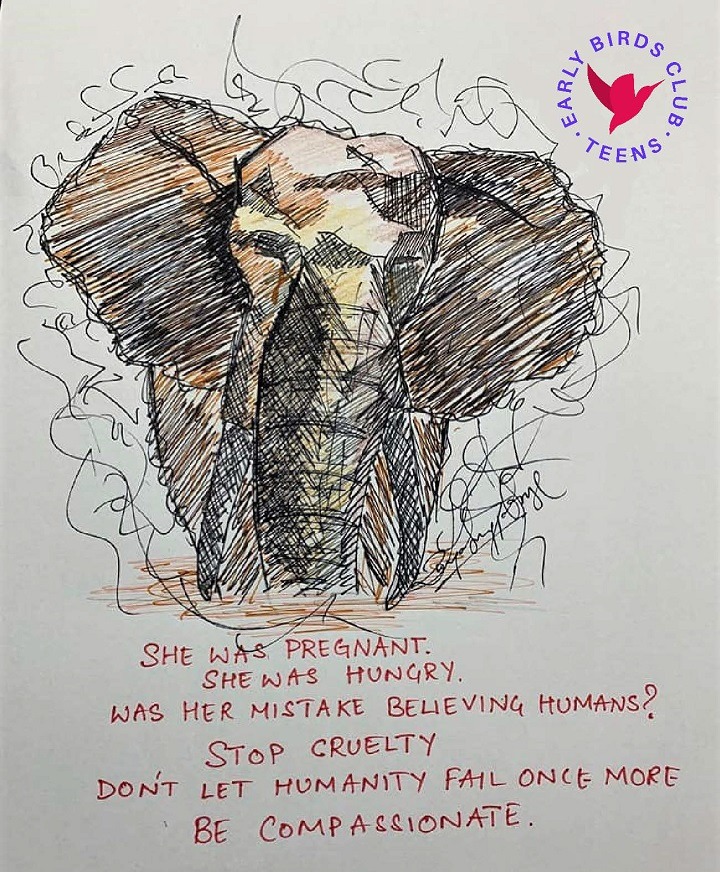 EARLY BIRDS CLUB
TEENS
SHE WAS PREGNANT.
SHE WAS HUNGRY.
WAS HER MISTAKE BELIEVING HUMANS?
STOP CRUELTY
DON'T LET HUMANITY FAIL ONCE MORE
BE COMPASSIONATE.